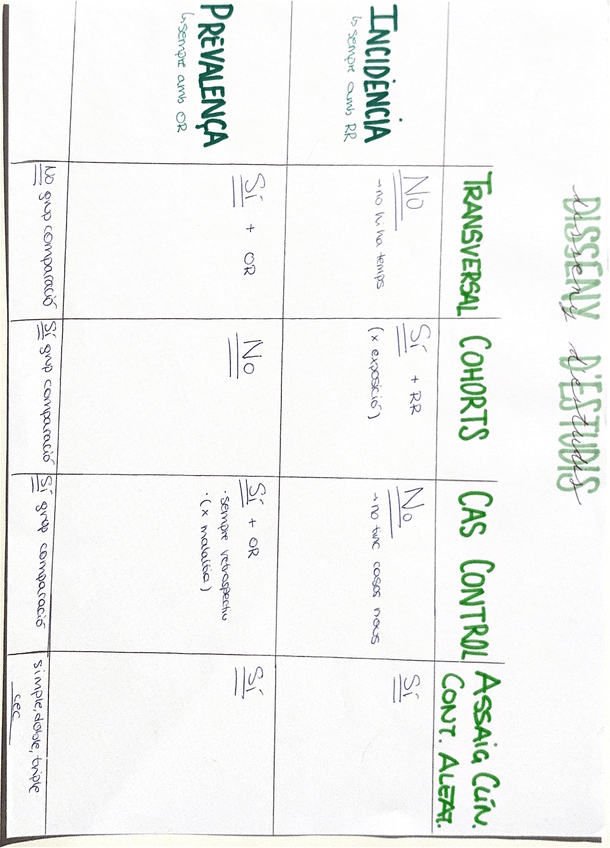 DISSENY D'ESTUDIS
disseny d'estudis
TRANSVERSAL
COHORTS
CAS CONTROL
ASSAIG CLÍN.
CONT. ALEAT.
INCIDÈNCIA
↳ sempre amb RR
No
→ no hi ha temps
Sí + RR
(x exposició)
No
→ no tinc casos nous
Sí
PREVALENÇA
↳ sempre amb OR
Sí + OR
No
Sí + OR
· sempre retrospectiu
· (x malaltia)
Sí
No grup comparació
Sí grup comparació
Sí grup comparació
simple, doble, triple
cec